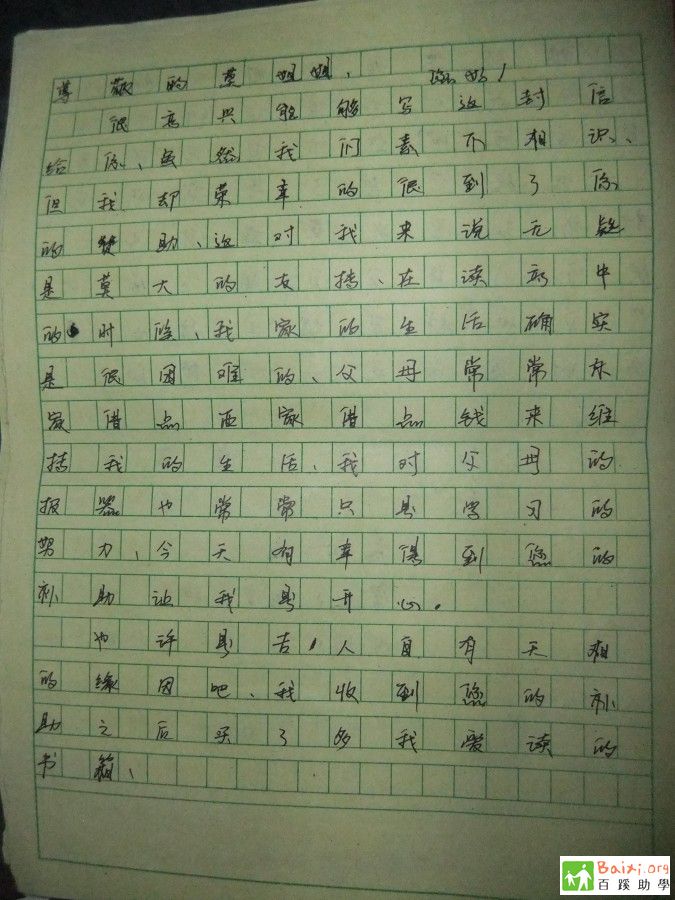 尊敬的莫姐姐、 您好！
很高兴能够写这封信
给你、虽然我们素不相识、
但我却荣幸的很到了你
的赞助、这对我来说无疑
是莫大的支持、在读高中
的时候、我家的生活确实
是很困难的、父母常常东
家借点西家借点钱来维
持我的生活、我对父母的
报器也常常只是学习的
努力、今天有幸得到您的
补助让我是开心。
也许是吉人自有天相
的缘因吧、我收到您的补
助之后买了多我爱读的
书籍、
Baixi.org
百蹊助學